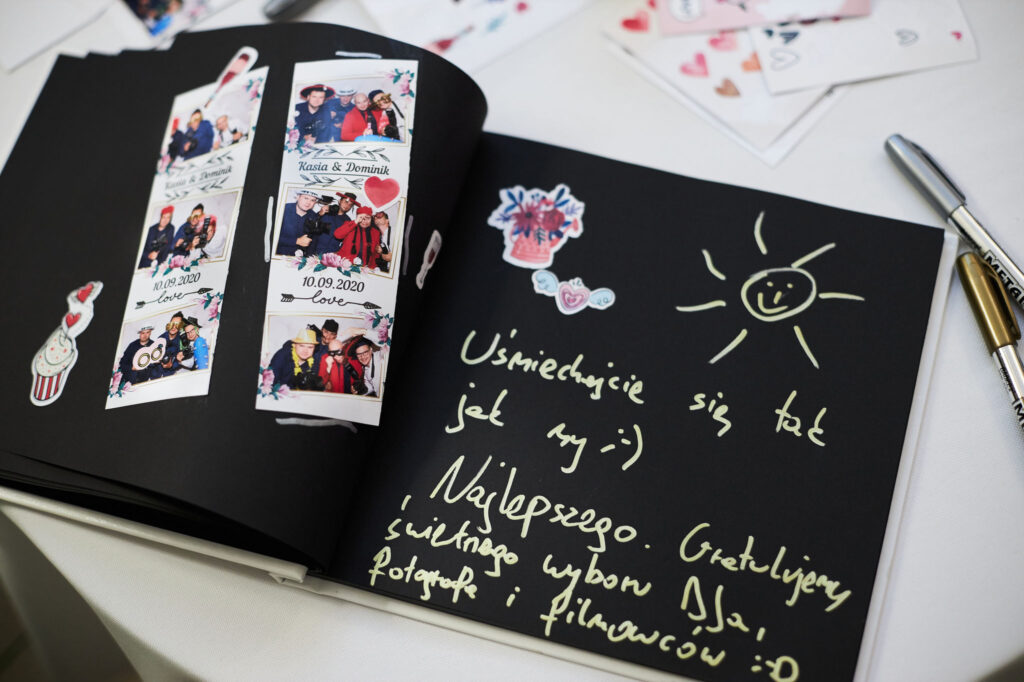 Kasia & Dominik
10.09.2020
love
Kasia & Dominik
10.09.2020
love
Uśmiechejcie się tak
jak my :-)
Najlepszego. Gretulujemy
świetnego wyboru DJa,
fotografa i filmowców :-D
META